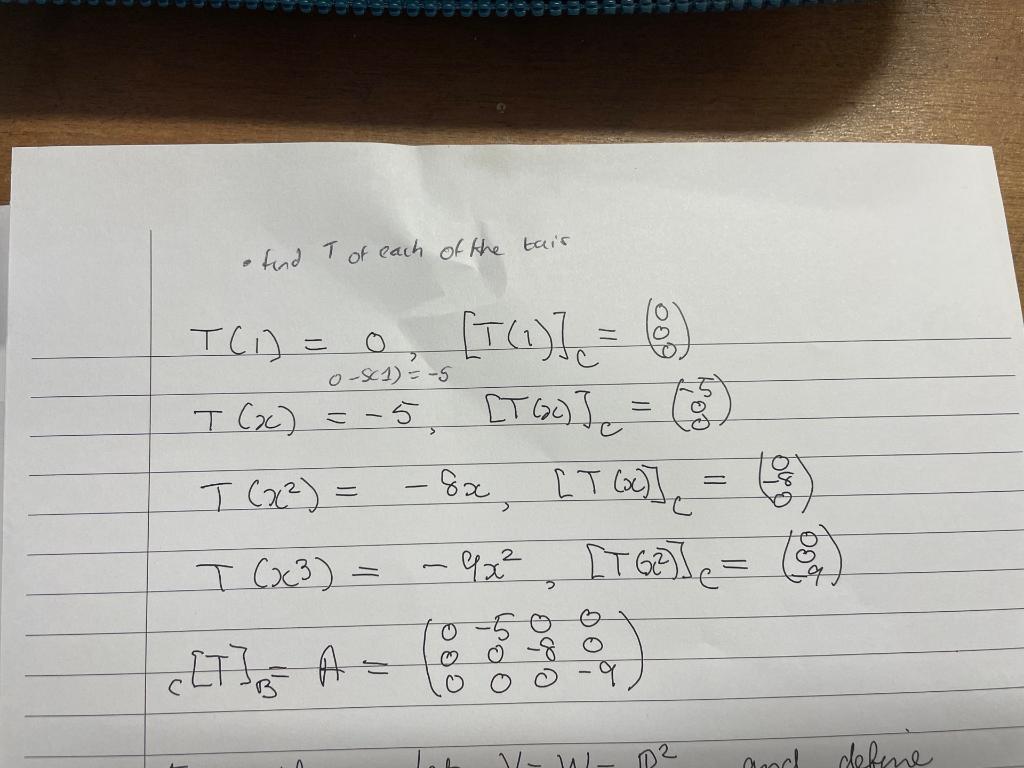 • find T of each of the
T(1) = 0, [T(1)]_C = (0 0 0)
0 - 5(1) = -5
T(x) = -5, [T(x)]_C = (-5 0 0)
T(x²) = -8x, [T(x)]_C = (0 -8 0)
T(x³) = -9x², [T(x²)]_C = (0 0 -9)
0 -5 0 0
0 0 -8 0
C[T]B = A = 0 0 0 -9
let V = W = P² and define